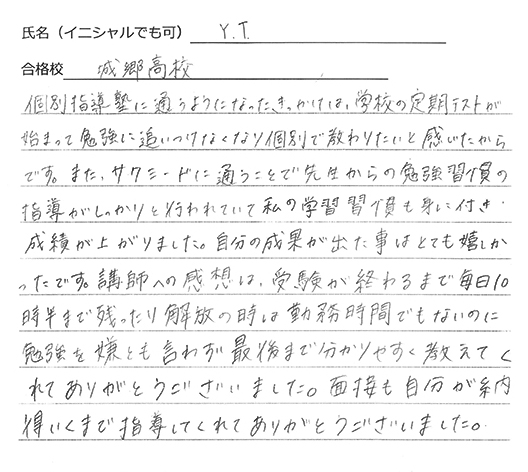 氏名（イニシャルでも可） Y.T.
合格校 城郷高校
個別指導塾に通うようになったきっかけは、学校の定期テストが
始まって勉強に追いつけなくなり個別で教わりたいと感じたから
です。また、サクシードに通うことで先生からの勉強習慣の
指導がしっかりと行われていて私の学習習慣も身に付き
成績が上がりました。自分の成果が出た事はとても嬉しか
ったです。講師への感想は、受験が終わるまで毎日10
時半まで残ったり解放の時は勤務時間でもないのに
勉強を嫌とも言わず最後まで分かりやすく教えてく
れてありがとうございました。面接も自分が納
得いくまで指導してくれてありがとうございました。